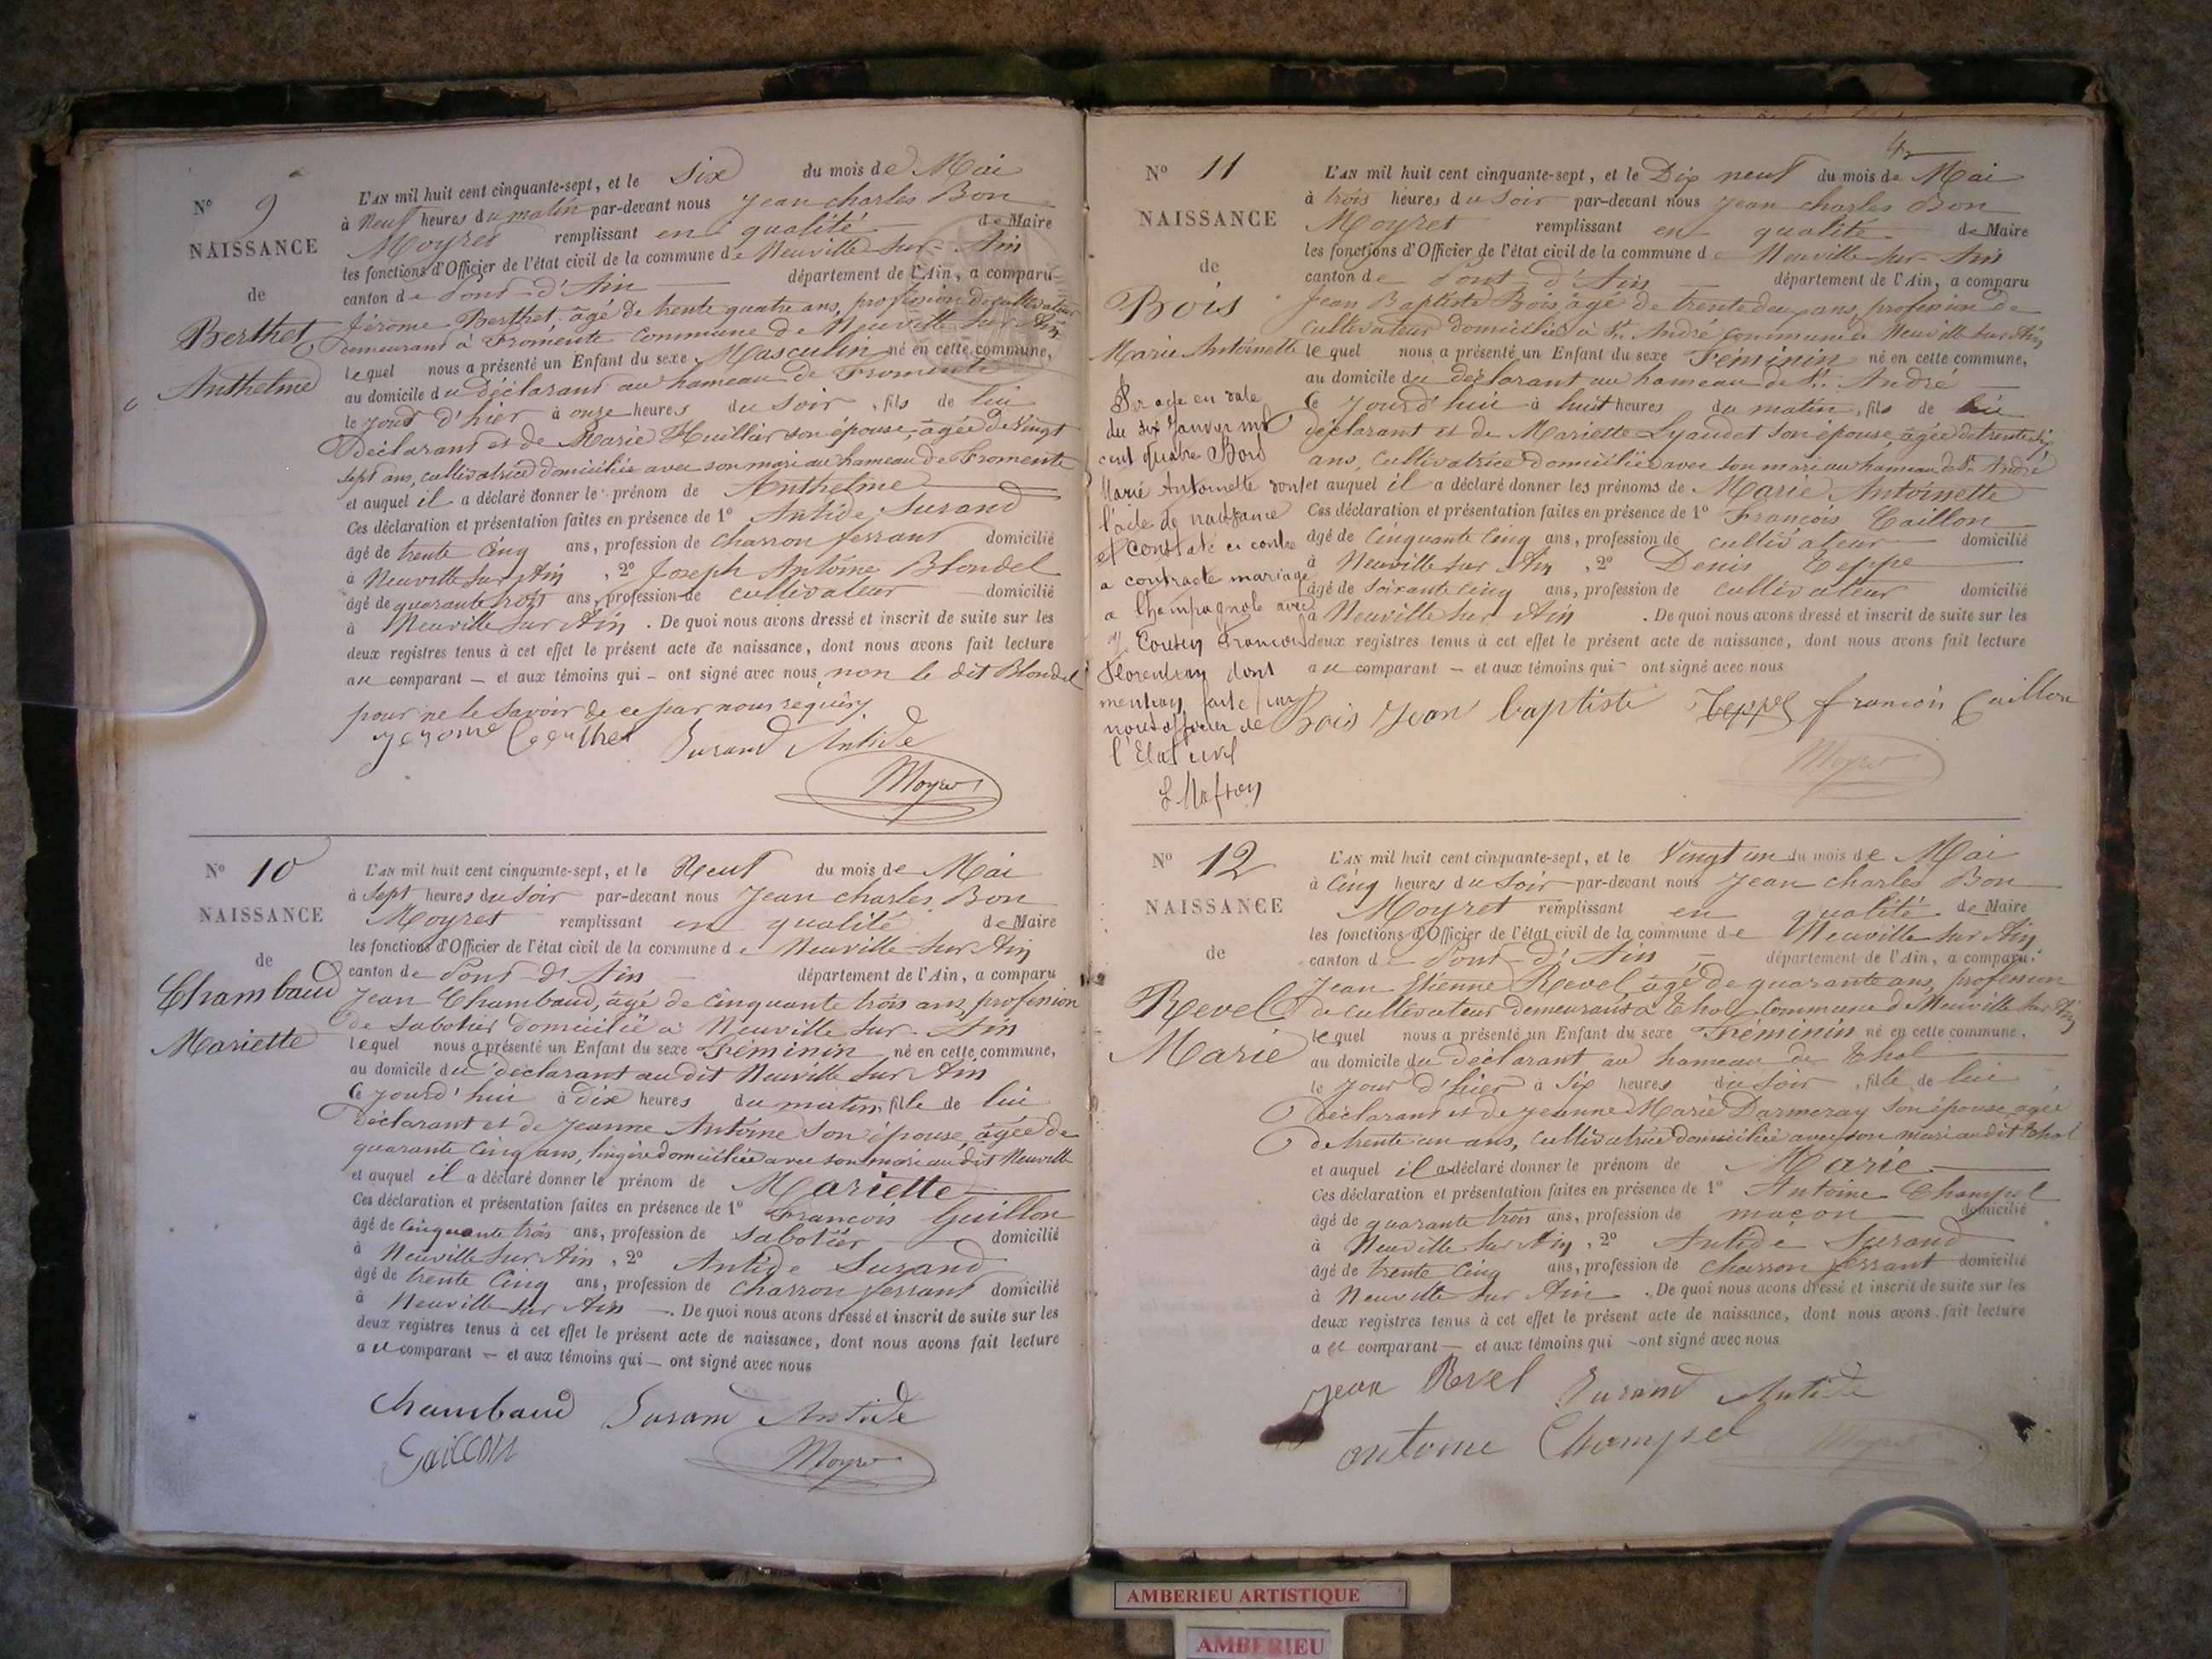 N° 9
NAISSANCE
de
Berthet
Anthelme
L'AN mil huit cent cinquante-sept, et le Six du mois de Mai
à Neuf heures du matin par-devant nous Jean charles Bon
Moyret remplissant en qualité de Maire
les fonctions d'Officier de l'état civil de la commune de Neuville sur Ain
canton de Pont d'Ain département de l'Ain, a comparu
Jérome Berthet âgé de trente quatre ans, profession de cultivateur
demeurant à Fromente Commune de Neuville sur Ain
lequel nous a présenté un Enfant du sexe Masculin né en cette commune,
au domicile du déclarant au hameau de Fromente
le jour d'hier à onze heures du soir, fils de lui
Déclarant et de Marie Huillier son épouse, âgée de vingt
sept ans, cultivatrice domiciliée avec son mari au hameau de Fromente
et auquel il a déclaré donner le prénom de Anthelme
Ces déclaration et présentation faites en présence de 1° Antide Surand
âgé de trente cinq ans, profession de charron ferrant domicilié
à Neuville sur Ain, 2° Joseph Antoine Blondel
âgé de quarante trois ans, profession de cultivateur domicilié
à Neuville sur Ain. De quoi nous avons dressé et inscrit de suite sur les
deux registres tenus à cet effet le présent acte de naissance, dont nous avons fait lecture
au comparant — et aux témoins qui — ont signé avec nous non le dit Blondel
pour ne le savoir de ce par nous requis
Jerome Berthet Surand Antide
Moyret
N° 10
NAISSANCE
de
Chambaud
Mariette
L'AN mil huit cent cinquante-sept, et le Neuf du mois de Mai
à Sept heures du Soir par-devant nous Jean charles Bon
Moyret remplissant en qualité de Maire
les fonctions d'Officier de l'état civil de la commune de Neuville sur Ain
canton de Pont d'Ain département de l'Ain, a comparu
Jean Chambaud, âgé de cinquante trois ans, profession
de Sabotier domicilié à Neuville sur Ain
lequel nous a présenté un Enfant du sexe Féminin né en cette commune,
au domicile du déclarant audit Neuville sur Ain
Ce jourd'hui à dix heures du matin, fille de lui
déclarant et de Jeanne Antoine son épouse, âgée de
quarante cinq ans, lingère domiciliée avec son mari audit Neuville
et auquel il a déclaré donner le prénom de Mariette
Ces déclaration et présentation faites en présence de 1° François Guillon
âgé de cinquante trois ans, profession de Sabotier domicilié
à Neuville sur Ain, 2° Antide Surand
âgé de trente cinq ans, profession de charron ferrant domicilié
à Neuville sur Ain. De quoi nous avons dressé et inscrit de suite sur les
deux registres tenus à cet effet le présent acte de naissance, dont nous avons fait lecture
au comparant — et aux témoins qui — ont signé avec nous
Chambaud Surand Antide
Moyret
N° 11
NAISSANCE
de
Bois
Marie Antoinette
Par acte en date
du six Janvier mil
cent quatre Bois
Marie Antoinette dont
l'acte de naissance
est constaté ci contre
a contracté mariage
a Champagnole avec
François
Florentin dont
mention faite par
nous officier de
l'Etat civil
L'AN mil huit cent cinquante-sept, et le Dix neuf du mois de Mai
à trois heures du soir par-devant nous Jean charles Bon
Moyret remplissant en qualité de Maire
les fonctions d'Officier de l'état civil de la commune de Neuville sur Ain
canton de Pont d'Ain département de l'Ain, a comparu
Jean Baptiste Bois, âgé de trente deux ans, profession de
Cultivateur domicilié à St. André Commune de Neuville sur Ain
lequel nous a présenté un Enfant du sexe Féminin né en cette commune,
au domicile du déclarant au hameau de St. André
Ce jourd'hui à huit heures du matin, fils de lui
déclarant et de Mariette Lyaudet son épouse, âgée de trente six
ans, Cultivatrice domiciliée avec son mari au hameau de St. André
et auquel il a déclaré donner les prénoms de Marie Antoinette
Ces déclaration et présentation faites en présence de 1° François Caillon
âgé de Cinquante Cinq ans, profession de cultivateur domicilié
à Neuville sur Ain, 2° Denis Teppe
âgé de soixante cinq ans, profession de cultivateur domicilié
à Neuville sur Ain. De quoi nous avons dressé et inscrit de suite sur les
deux registres tenus à cet effet le présent acte de naissance, dont nous avons fait lecture
au comparant — et aux témoins qui — ont signé avec nous
Bois Jean baptiste Teppe francois Caillon
Moyret
N° 12
NAISSANCE
de
Revel
Marie
L'AN mil huit cent cinquante-sept, et le Vingt un du mois de Mai
à Cinq heures du Soir par-devant nous Jean charles Bon
Moyret remplissant en qualité de Maire
les fonctions d'Officier de l'état civil de la commune de Neuville sur Ain
canton de Pont d'Ain département de l'Ain, a comparu
Jean Etienne Revel, âgé de quarante ans, profession
de cultivateur demeurant à Thol Commune de Neuville sur Ain
lequel nous a présenté un Enfant du sexe Féminin né en cette commune,
au domicile du déclarant au hameau de Thol
le jour d'hier à Six heures du soir, fille de lui
Déclarant et de Jeanne Marie Darmezay son épouse, âgée
de trente un ans, Cultivatrice domiciliée avec son mari audit Thol
et auquel il a déclaré donner le prénom de Marie
Ces déclaration et présentation faites en présence de 1° Antoine Champel
âgé de quarante trois ans, profession de maçon domicilié
à Neuville sur Ain, 2° Antide Surand
âgé de trente Cinq ans, profession de charron ferrant domicilié
à Neuville sur Ain. De quoi nous avons dressé et inscrit de suite sur les
deux registres tenus à cet effet le présent acte de naissance, dont nous avons fait lecture
au comparant — et aux témoins qui — ont signé avec nous
Jean Revel Surand Antide
antoine Champel Moyret
AMBERIEU ARTISTIQUE
AMBERIEU